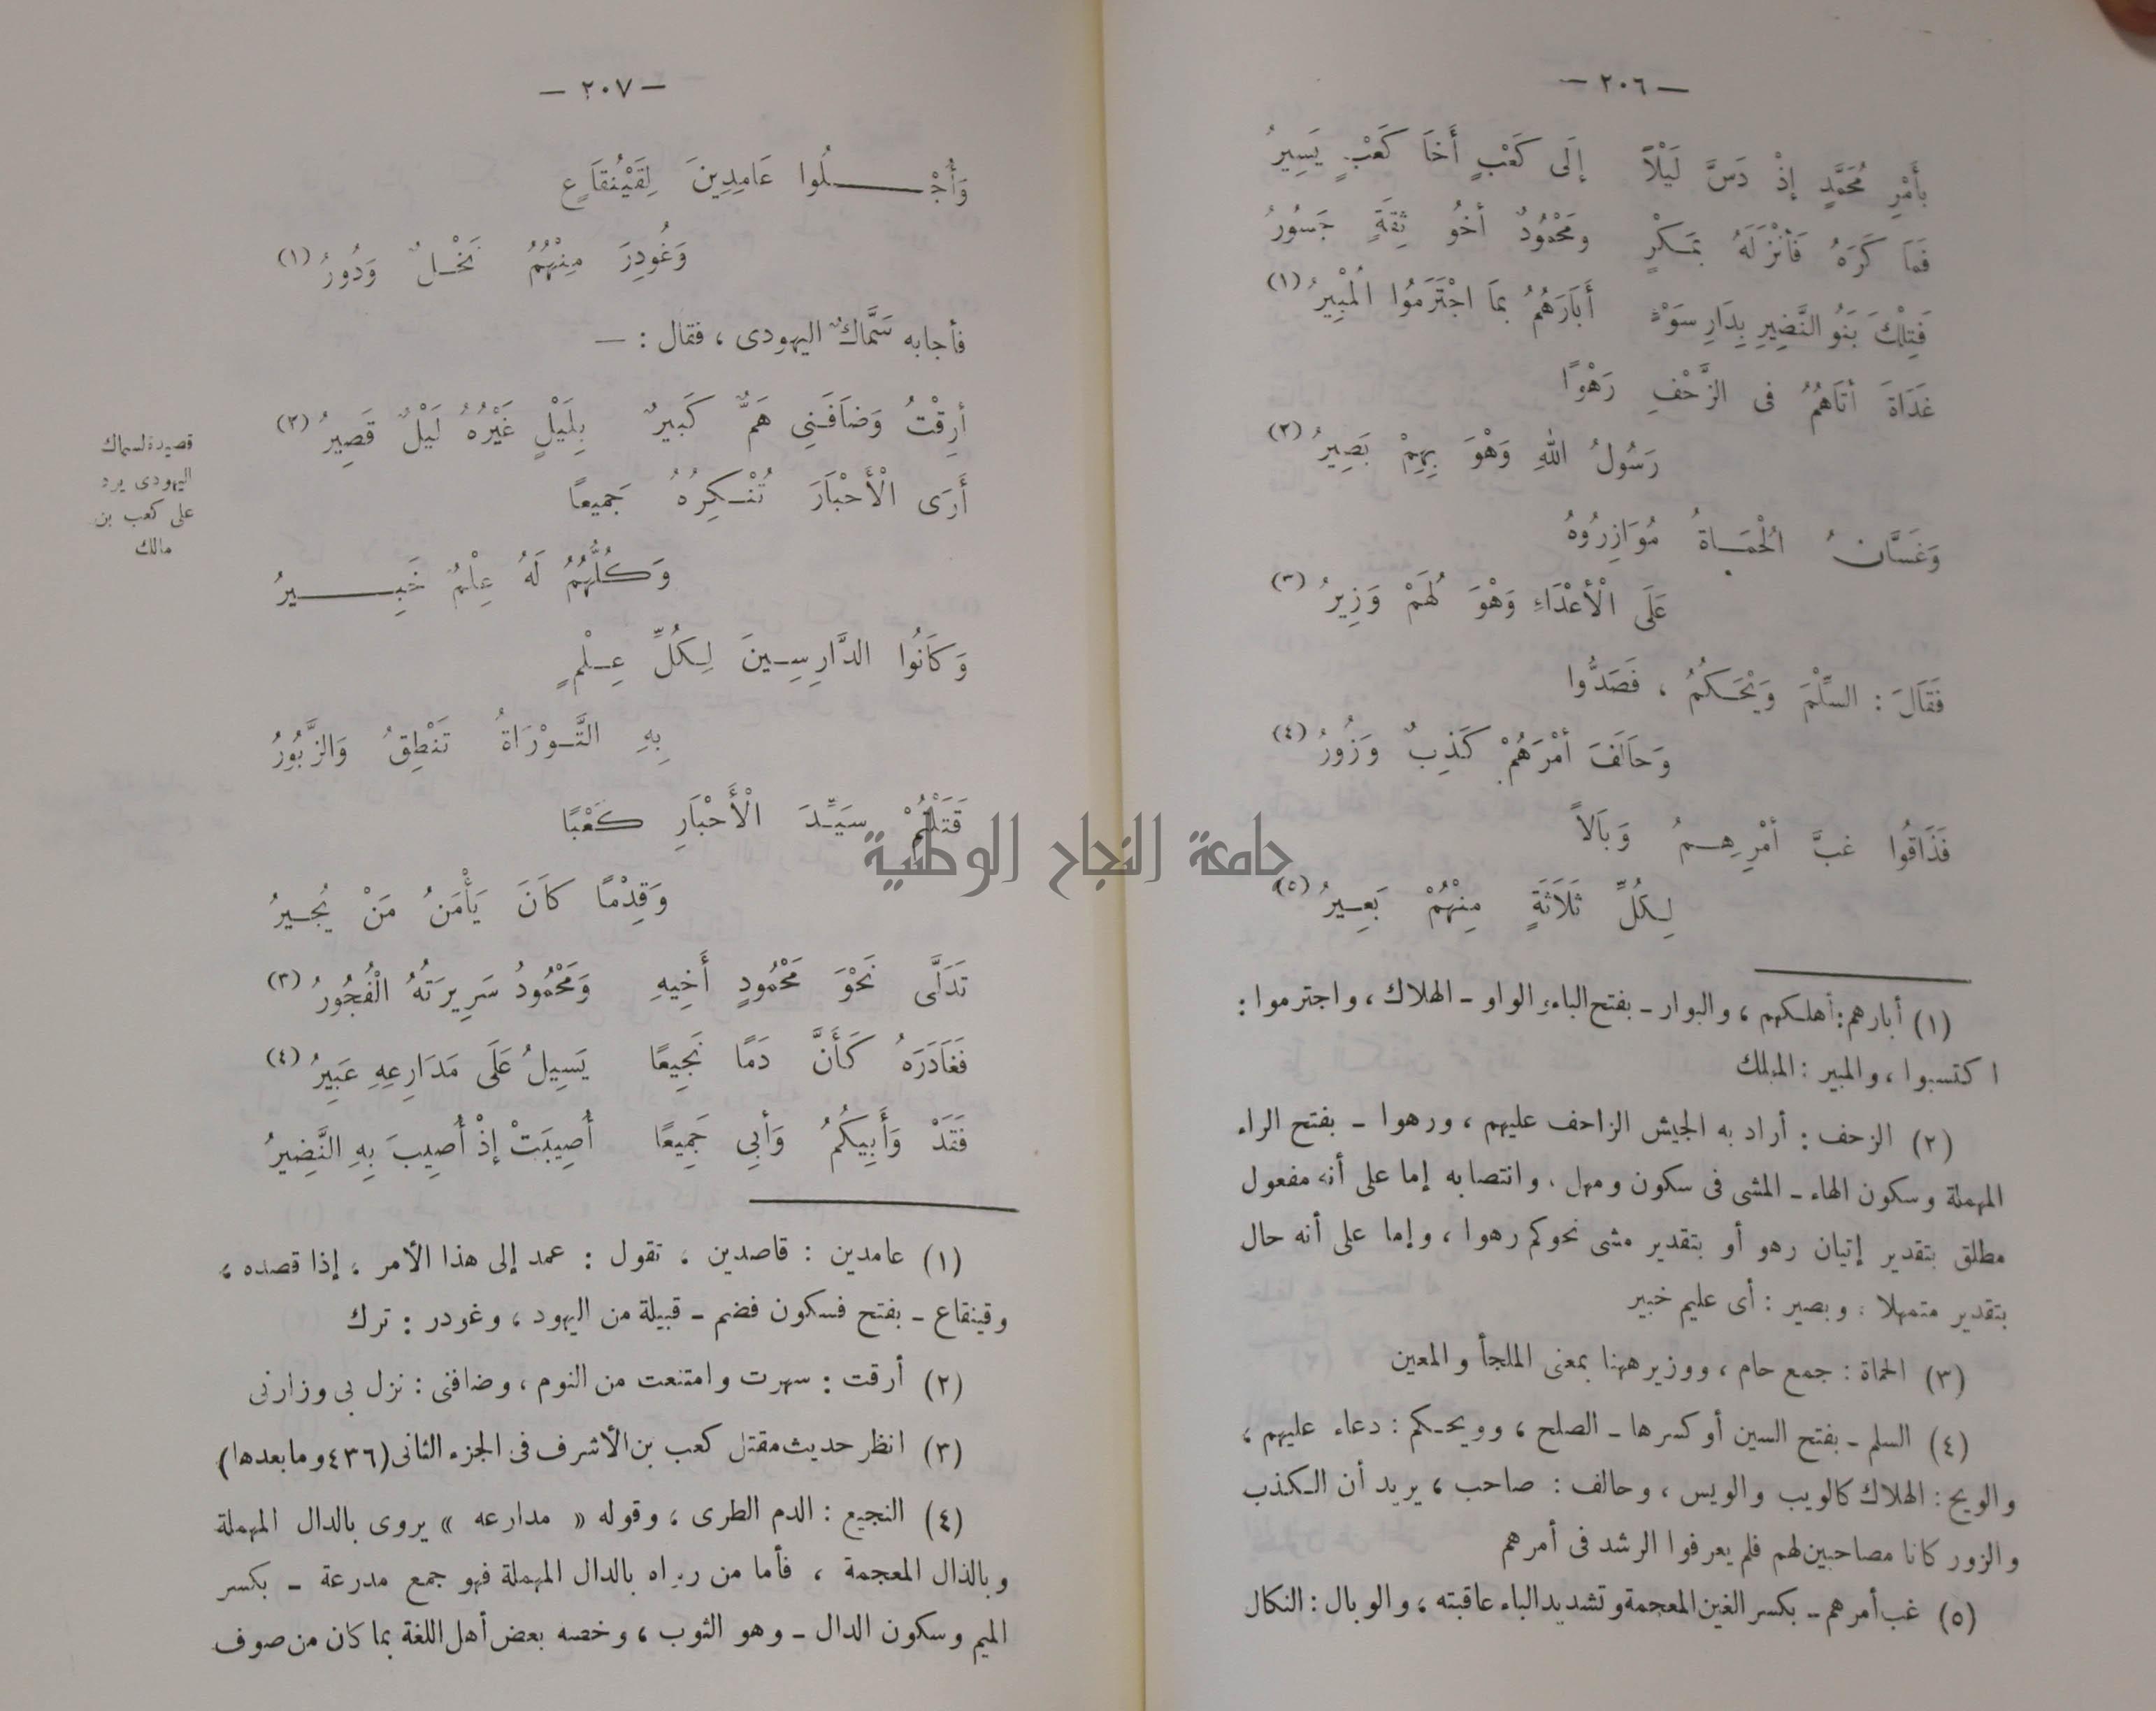 — ٢٠٦ —
بِأَمْرِ مُحَمَّدٍ إِذْ دَسَّ لَيْلاً إِلَى كَعْبٍ أَخَا كَعْبٍ يَسِيرُ
فَمَا كَرَهُ فَأَنْزَلَهُ بِمَكْرٍ ومَحْمُودٌ أَخُو ثِقَةٍ جَسُورُ
فَتِلْكَ بَنُو النَّضِيرِ بِدَارِ سَوْءٍ أَبَارَهُمُ بِمَا اجْتَرَمُوا الْمُبِيرُ (١)
غَدَاةَ أَتَاهُمُ فى الزَّحْفِ رَهْوًا
رَسُولُ اللهِ وَهْوَ بِهِمْ بَصِيرُ (٢)
وَغَسَّانُ الْحُمَاةُ مُوَازِرُوهُ
عَلَى الْأَعْدَاءِ وَهْوَ لَهُمْ وَزِيرُ (٣)
فَقَالَ : السِّلْمَ وَيْحَكُمُ ، فَصَدُّوا
وَحَالَفَ أَمْرَهُمْ كَذِبٌ وَزُورُ (٤)
فَذَاقُوا غِبَّ أَمْرِهِمُ وَبَالاً
لِكُلِّ ثَلَاثَةٍ مِنْهُمْ بَعِيرُ (٥)
(١) أبارهم : أهلكهم ، والبوار ـ بفتح الباء والواو ـ الهلاك ، واجترموا :
اكتسبوا ، والمبير : المهلك
(٢) الزحف : أراد به الجيش الزاحف عليهم ، ورهوا ـ بفتح الراء
المهملة وسكون الهاء ـ المشى فى سكون ومهل . وانتصابه إما على أنه مفعول
مطلق بتقدير إتيان رهو أو بتقدير مشى نحوكم رهوا ، وإما على أنه حال
بتقدير متمهلا . وبصير : أى عليم خبير
(٣) الحماة : جمع حام ، ووزير ههنا بمعنى الملجأ والمعين
(٤) السلم ـ بفتح السين أو كسرها ـ الصلح ، وويحكم : دعاء عليهم ،
والويح : الهلاك كالويب والويس ، وحالف : صاحب ، يريد أن الكذب
والزور كانا مصاحبين لهم فلم يعرفوا الرشد فى أمرهم
(٥) غب أمرهم ـ بكسر الغين المعجمة وتشديد الباء عاقبته ، والوبال : النكال
— ٢٠٧ —
وَأُجْلُوا عَامِدِينَ لِقَيْنُقَاعٍ
وَغُودِرَ مِنْهُمُ نَخْلٌ وَدُورُ (١)
فأجابه سَمَّاكٌ اليهودى ، فقال : —
أَرِقْتُ وَضَافَنِى هَمٌّ كَبِيرٌ بِلَيْلٍ غَيْرُهُ لَيْلٌ قَصِيرُ (٢)
أَرَى الْأَحْبَارَ تُنْكِرُهُ جَمِيعًا
وَكُلُّهُمُ لَهُ عِلْمٌ خَبِيرُ
وَكَانُوا الدَّارِسِينَ لِكُلِّ عِلْمٍ
بِهِ التَّوْرَاةُ تَنْطِقُ وَالزَّبُورُ
قَتَلْتُمْ سَيِّدَ الْأَحْبَارِ كَعْبًا
وَقِدْمًا كَانَ يَأْمَنُ مَنْ يُجِيرُ
تَدَلَّى نَحْوَ مَحْمُودٍ أَخِيهِ وَمَحْمُودُ سَرِيرَتُهُ الْفُجُورُ (٣)
فَغَادَرَهُ كَأَنَّ دَمًا نَجِيعًا يَسِيلُ عَلَى مَدَارِعِهِ عَبِيرُ (٤)
فَقَدْ وَأَبِيكُمُ وَأَبِى جَمِيعًا أُصِيبَتْ إِذْ أُصِيبَ بِهِ النَّضِيرُ
قصيدة لسماك
اليهودى يرد
على كعب بن
مالك
(١) عامدين : قاصدين ، تقول : عمد إلى هذا الأمر ، إذا قصده ،
وقينقاع ـ بفتح فسكون فضم ـ قبيلة من اليهود ، وغودر : ترك
(٢) أرقت : سهرت وامتنعت من النوم ، وضافنى : نزل بى وزارنى
(٣) انظر حديث مقتل كعب بن الأشرف فى الجزء الثانى (٤٣٦ وما بعدها)
(٤) النجيع : الدم الطرى ، وقوله « مدارعه » يروى بالدال المهملة
وبالذال المعجمة ، فأما من رواه بالدال المهملة فهو جمع مدرعة ـ بكسر
الميم وسكون الدال ـ وهو الثوب ، وخصه بعض أهل اللغة بما كان من صوف
جامعة النجاح الوطنية